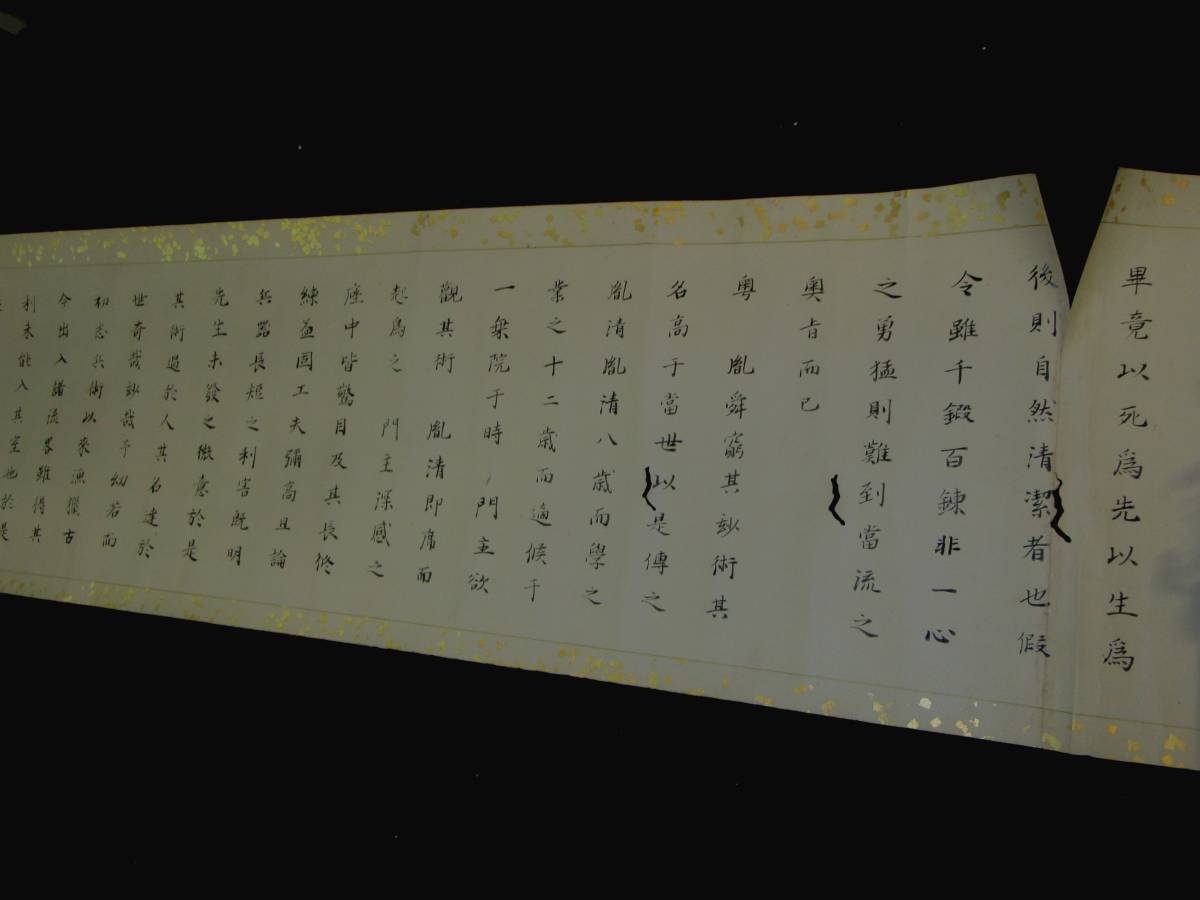 畢竟以死為先以生為
後則自然清潔者也假
令雖千鍛百錬非一心
之勇猛則難到當流之
奧旨而已
粤 胤舜窮其玅術其
名高于當世以是傳之
胤清胤清八歳而學之
業之十二歳而適候于
一乗院于時 門主欲
觀其術 胤清即席而
起為之 門主深感之
座中皆驚目及其長修
練益固工夫彌高且論
兵器長短之利害既明
先生未發之微意於是
其術過於人其名達於
世奇哉玅哉予幼若而
志兵術以來漁獵古
今出入諸流畧雖得其
利未能入其室也於是